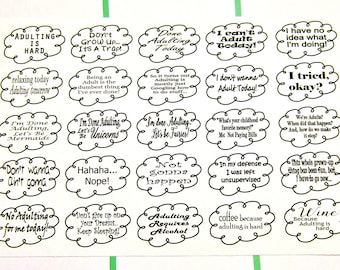 ADULTING
IS
HARD
Don't
Grow Up...
It's A Trap!
Done
Adulting
Today
I can't
Adult
Today!
I have no
idea what
I'm doing!
relaxing today
Adulting tomorrow
Being an adult is the
dumbest thing
I've ever done!
So it turns out
Adulting is
mostly just
Googling how
to do stuff.
I don't wanna
Adult Today!
I tried,
okay?
I'm Done
Adulting,
Let's Be
Mermaids
I'm Done Adulting,
Let's Be
Unicorns
I'm done
Adulting,
"What's your childhood
favorite memory?"
Me: Not Paying Bills
We're Adults?
When did that
happen? And,
how do we make
it stop?
Don't wanna
Ain't gonna
Hahaha...
Nope!
Not
Gonna
happen
In my defense
I was left
unsupervised
This whole grown-up
thing has been fun, but
I have to go now...
No Adulting
for me today!
Don't give up on
your Dreams,
Keep Sleeping!
Adulting
Requires
Alcohol
coffee because
adulting is hard
Wine
Because
Adulting is
hard